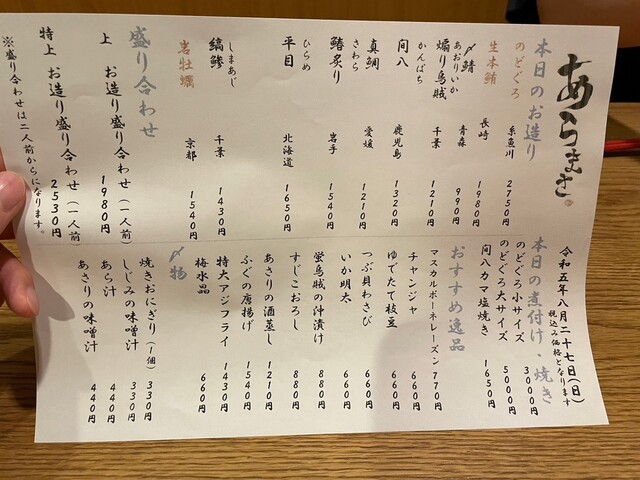 あらまさ
令和五年八月二十七日(日)
税込み価格となります
本日のお造り
のどぐろ 糸魚川 2750円
生本鮪 長崎 1980円
〆鯖 青森 990円
あおりいか
煽り烏賊 千葉 1210円
かんぱち
間八 鹿児島 1320円
真鯛 愛媛 1210円
さわら
鰆炙り 岩手 1540円
ひらめ
平目 北海道 1650円
しまあじ
縞鯵 千葉 1430円
岩牡蠣 京都 1540円
盛り合わせ
上 お造り盛り合わせ(一人前) 1980円
特上 お造り盛り合わせ(一人前) 2530円
※盛り合わせは二人前からになります。
本日の煮付け・焼き
のどぐろ小サイズ 3000円
のどぐろ大サイズ 5000円
間八カマ塩焼き 1650円
おすすめ逸品
マスカルポーネレーズン 770円
チャンジャ 660円
ゆでたて枝豆 660円
つぶ貝わさび 660円
いか明太 660円
蛍烏賊の沖漬け 880円
すじこおろし 880円
あさりの酒蒸し 1210円
ふぐの唐揚げ 1540円
特大アジフライ 1430円
梅水晶 660円
〆物
焼きおにぎり(1個) 330円
しじみの味噌汁 330円
あら汁 440円
あさりの味噌汁 440円